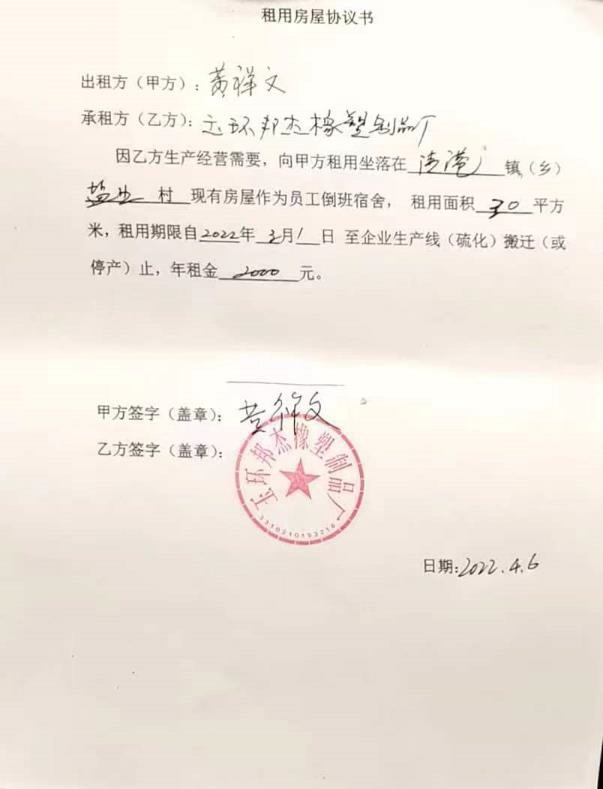 租用房屋协议书
出租方（甲方）：黄祥文
承租方（乙方）：玉环邦杰橡塑制品厂
因乙方生产经营需要，向甲方租用坐落在 清港 镇（乡）
盐业 村 现有房屋作为员工倒班宿舍， 租用面积 30 平方
米，租用期限自2022年 3月1日 至企业生产线（硫化）搬迁（或
停产）止，年租金 2000 元。
甲方签字（盖章）：黄祥文
乙方签字（盖章）：
玉环邦杰橡塑制品厂
日期:2022.4.6